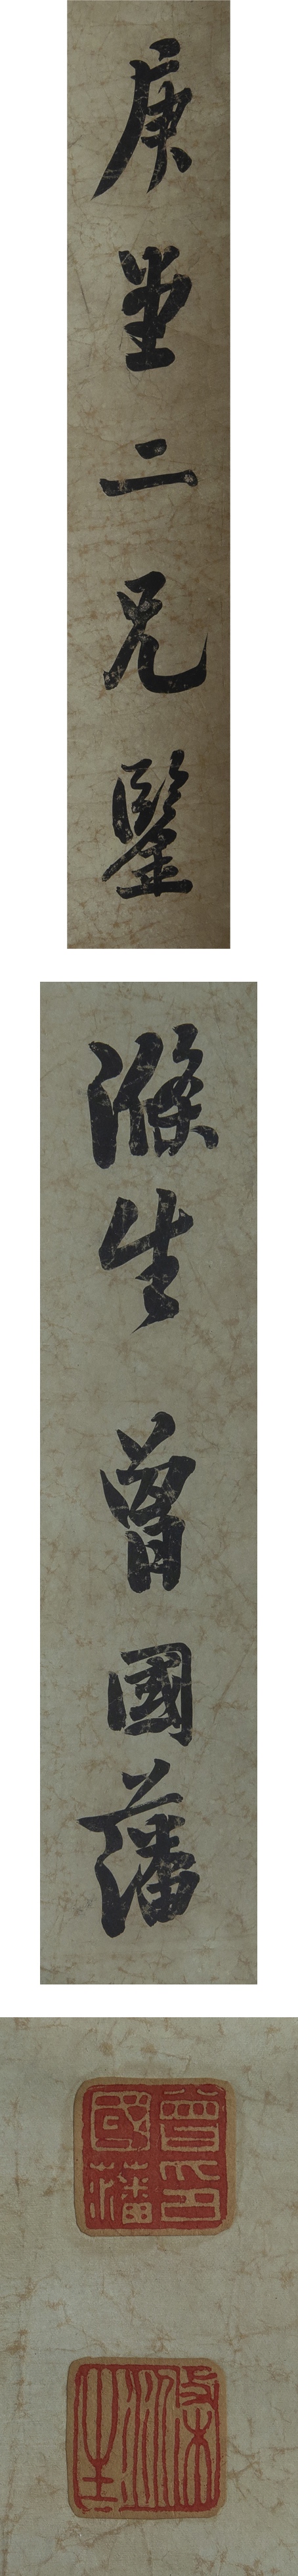 庚堂二兄鑒
滌生曾國藩
曾國藩印
滌生